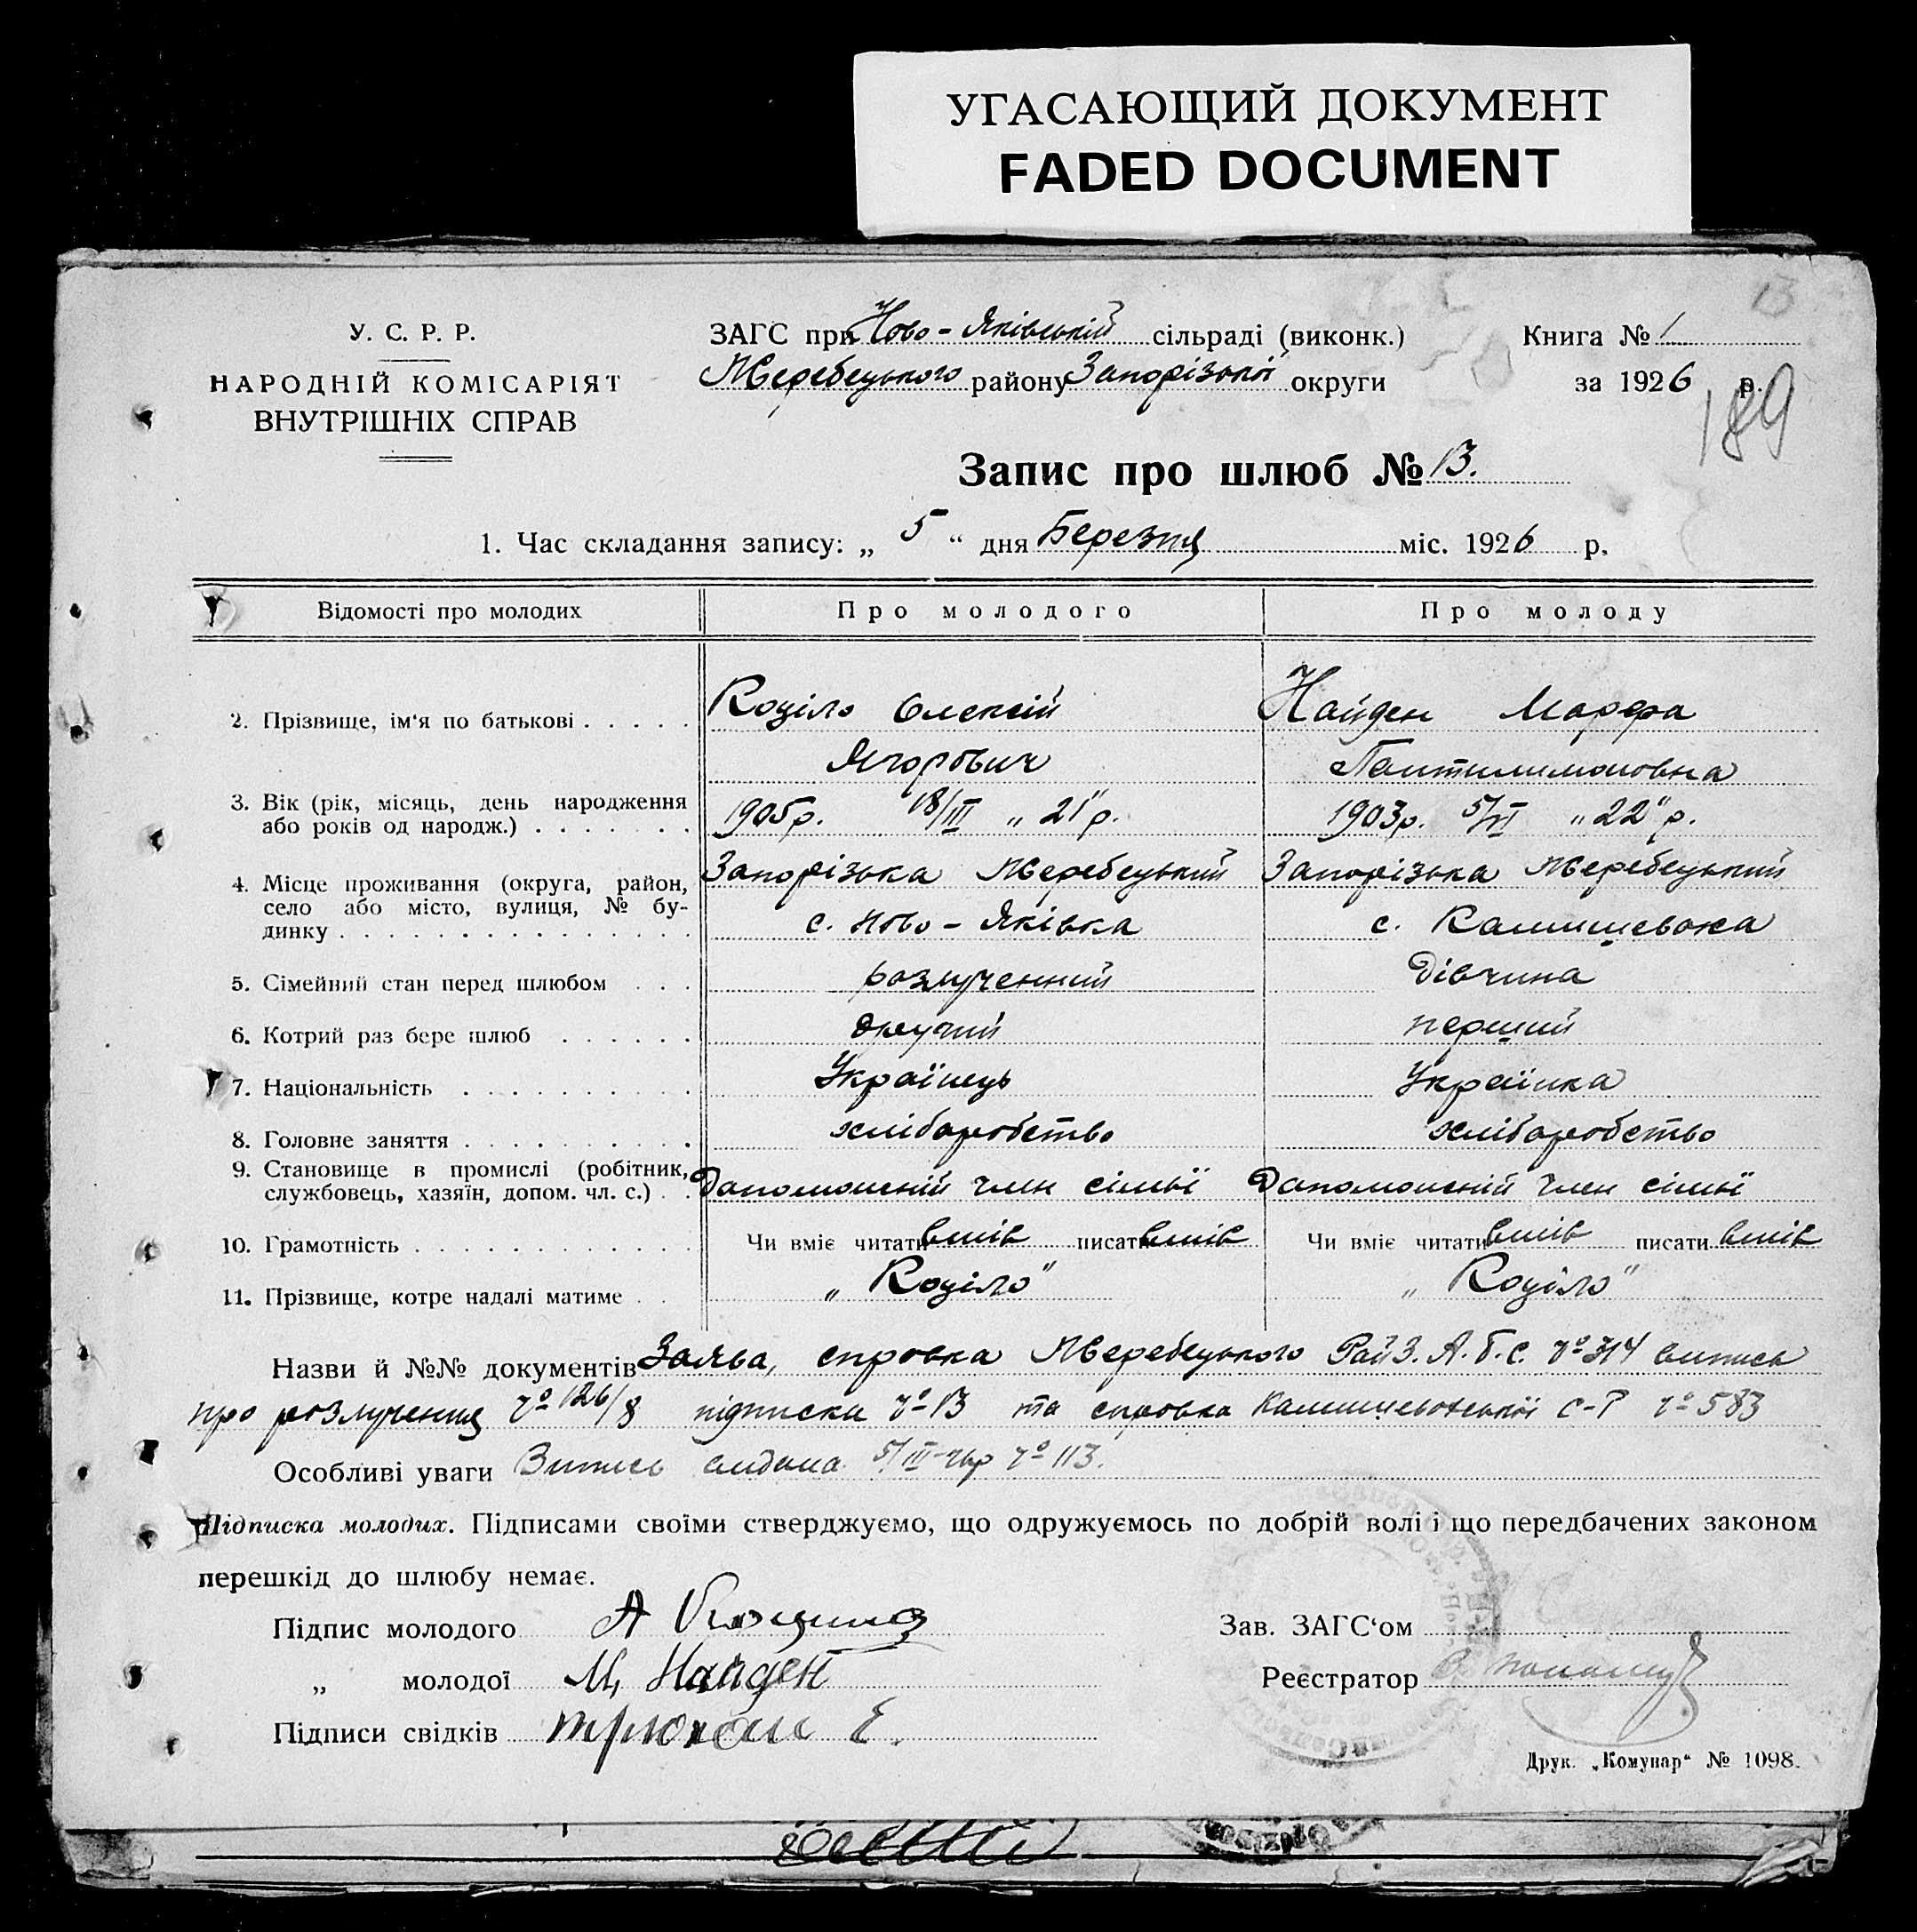 УГАСАЮЩИЙ ДОКУМЕНТ
FADED DOCUMENT
У. С. Р. Р.
НАРОДНІЙ КОМІСАРІЯТ
ВНУТРІШНІХ СПРАВ
ЗАГС при Ново-Яківській сільраді (виконк.)
Жеребецького району Запорізької округи
Книга № 1
за 1926 р.
13
189
Запис про шлюб № 13.
1. Час складання запису: „ 5 “ дня Березня міс. 1926 р.
Відомості про молодих Про молодого Про молоду
2. Прізвище, ім‘я по батькові . . . . . Коціло Олексій Найден Марфа
Ягорович Пантилимоновна
3. Вік (рік, місяць, день народження
або років од народж.) . . . . . . . 1905р. 18/III „21“р. 1903р. 5/VI „22“р.
4. Місце проживання (округа, район, Запорізька Жеребецький Запорізька Жеребецький
село або місто, вулиця, № бу- с. Ново-Яківка с. Камишеваха
динку . . . . . . . . . . . . . . . .
5. Сімейний стан перед шлюбом . . . розлученний Дівчина
6. Котрий раз бере шлюб . . . . . . другий перший
7. Національність . . . . . . . . . . Українець Українка
8. Головне заняття . . . . . . . . . . хліборобство хліборобство
9. Становище в промислі (робітник,
службовець, хазяїн, допом. чл. с.) . . Допоможеній член сімьї Допоможеній член сімьї
10. Грамотність . . . . . . . . . . . . Чи вміє читати вмів писати вмів Чи вміє читати вмів писати вмів
11. Прізвище, котре надалі матиме . . „Коціло“ „Коціло“
Назви й №№ документів Заява, справка Жеребецького Рай З.А.Г.С. № 314 випись
про розлучення № 126/8 підписка № 13 та справка Камишеваської С-Р № 583
Особливі уваги Випись видана 5/III-26р № 113.
Підписка молодих. Підписами своїми стверджуємо, що одружуємось по добрій волі і що передбачених законом
перешкід до шлюбу немає.
Підпис молодого А Коцило
Зав. ЗАГС‘ом
„ молодої М, Найден
Реєстратор
Підписи свідків Трюхан Е.
Друк. „Комунар“ № 1098.